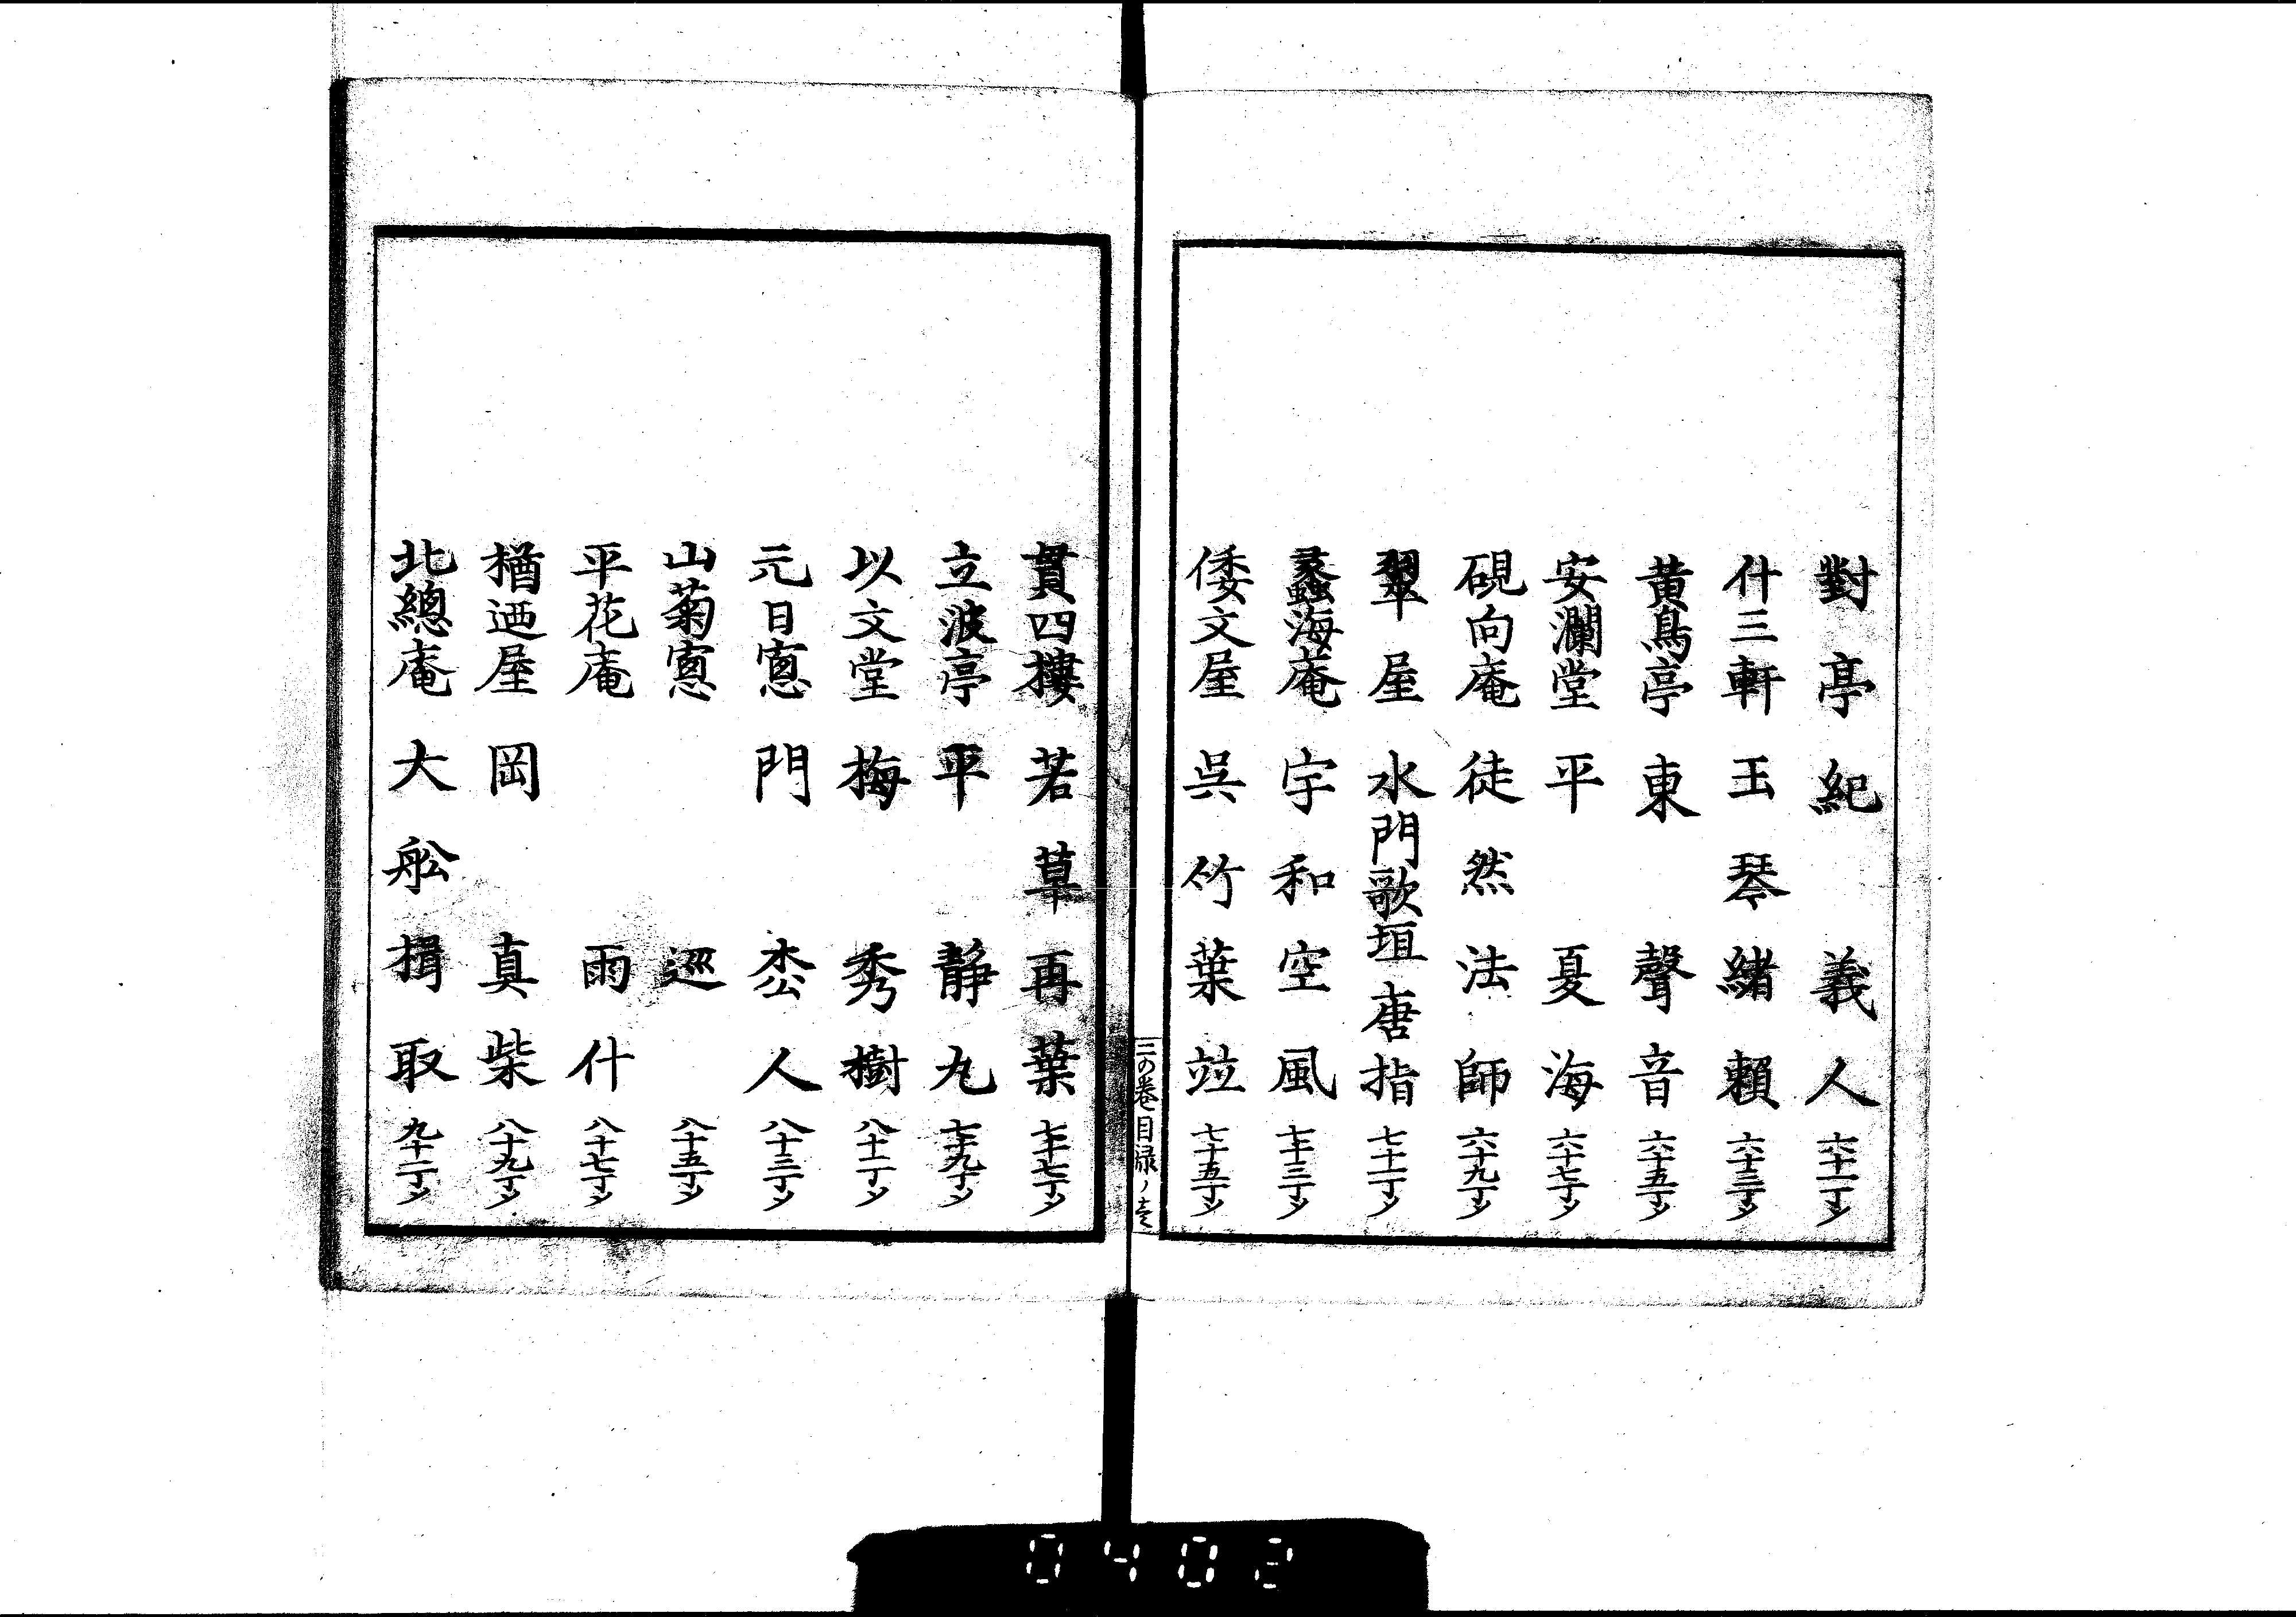 對亭紀義人六十一丁メ
什三軒玉琴緒頼六十三丁メ
黄鳥亭東聲音六十五丁メ
安瀾堂平夏海六十七丁メ
硯向庵徒然法師六十九丁メ
翠屋水門歌垣唐指七十一丁メ
蠡海庵宇和空風七十三丁メ
倭文屋呉竹葉竝七十五丁メ
三の巻目録ノ
貫四樓若草再葉七十七丁メ
立波亭平静丸七十九丁メ
以文堂梅秀樹八十一丁メ
元日窓門枩人八十三丁メ
山菊窓巡八十五丁メ
平花庵雨什八十七丁メ
楢廼屋岡真柴八十九丁メ
北總庵大舩楫取九十一丁メ
0402